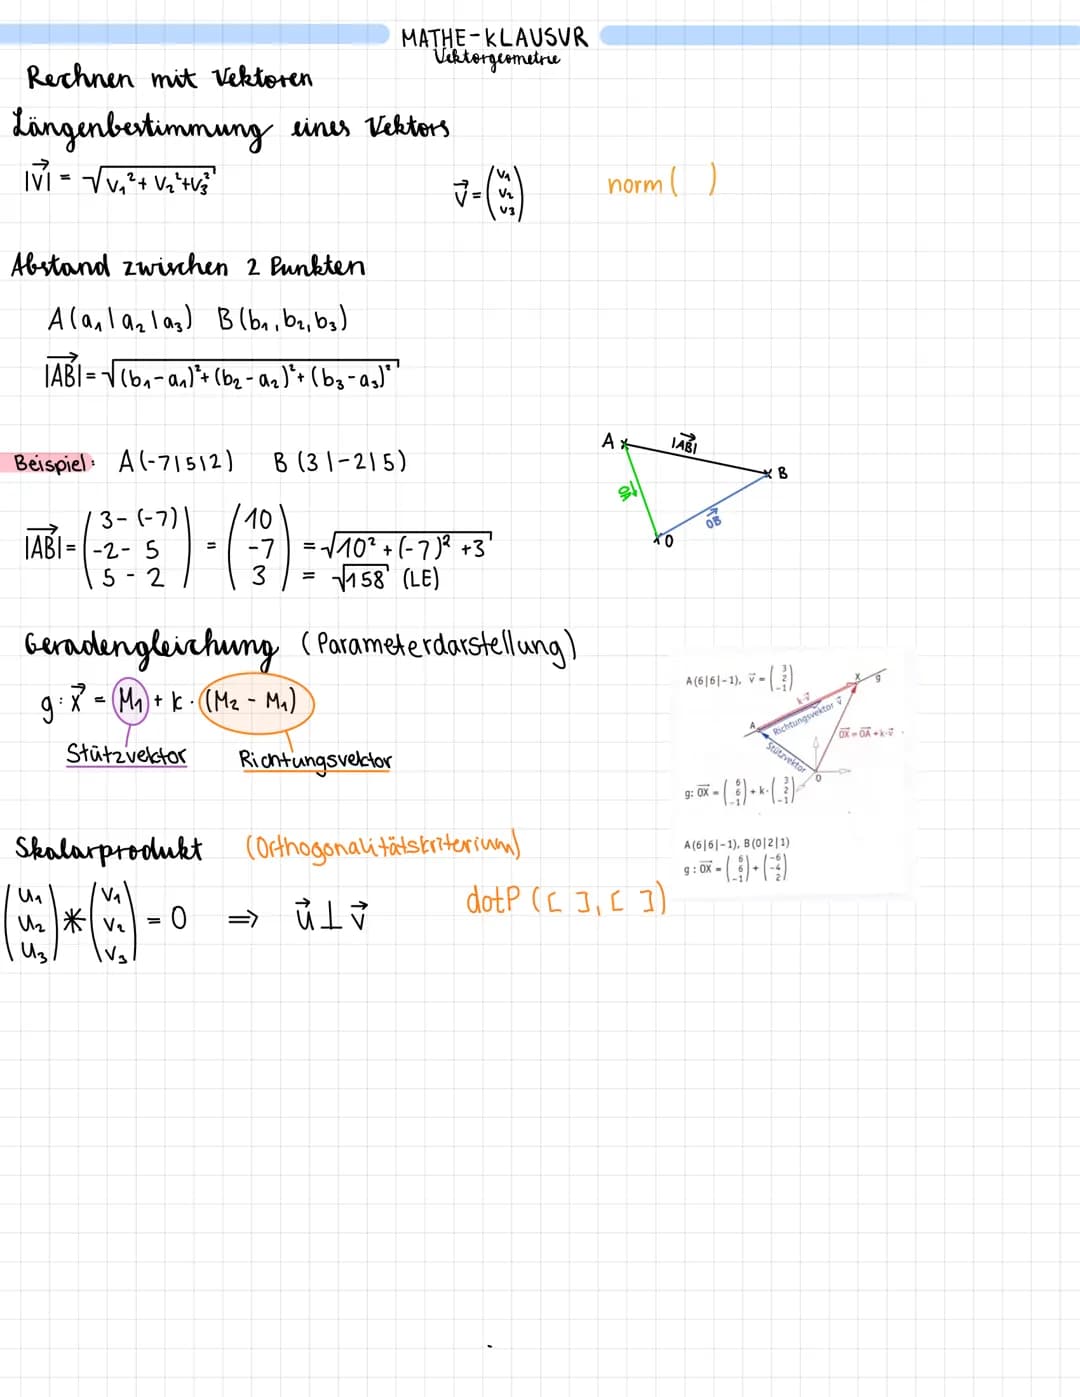 MATHE-KLAUSUR
Vektorgeometrie
Rechnen mit Vektoren
Längenbestimmung eines Vektors
|v⃗| = √(v₁² + v₂² + v₃²)
v⃗ = (v₁ v₂ v₃)
norm ( )
Abstand zwischen 2 Punkten
A(a₁|a₂|a₃) B(b₁,b₂,b₃)
|AB⃗| = √((b₁-a₁)² + (b₂-a₂)² + (b₃-a₃)²)
Beispiel: A(-7|5|2) B(3|-2|5)
|AB⃗| = (3-(-7) -2-5 5-2) = (10 -7 3) = √(10² + (-7)² + 3)
= √158 (LE)
A |AB⃗| B
OB⃗
O
Geradengleichung (Parameterdarstellung)
g: x⃗ = M₁ + k · (M₂ - M₁)
Stützvektor Richtungsvektor
A(6|6|-1), v⃗ = (3 2 -1)
k·v⃗
X g
A Richtungsvektor v⃗
OX⃗ = OA⃗ + k·v⃗
Stützvektor
O
g: OX⃗ = (6 6 -1) + k·(3 2 -1)
A(6|6|-1), B(0|2|1)
g: OX⃗ = (6 6 -1) + (-6 -4 2)
Skalarprodukt (Orthogonalitätskriterium)
(u₁ u₂ u₃) * (v₁ v₂ v₃) = 0 ⇒ u⃗ ⊥ v⃗
dotP ([ ], [ ])